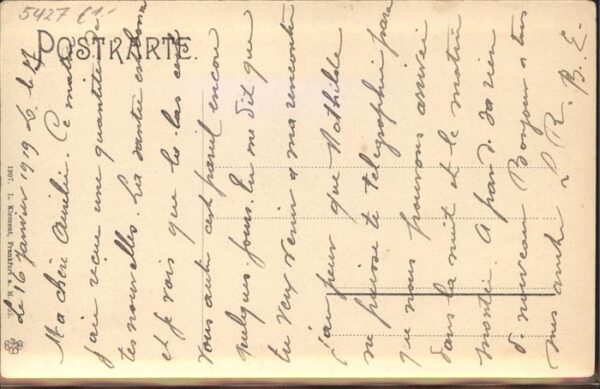 5427 €1.-
POSTKARTE.
1907. L. Klement, Frankfurt a. M.
Le 16 Janvier 1919
Ma chère Amélie. Ce matin
j'aie une quantité de
tes nouvelles. La santé est bonne
et je vois que là bas c'est
vous autre c'est pareil encore
quelques jours. Tu me dit que
tu veux venir à ma rencontre
j'ai peur que Mathilde
ne puisse te télégraphie parce
que nous pouvons arriver
dans la nuit et le matin
rien
de nouveau Bonjour à tous
R. B. E.